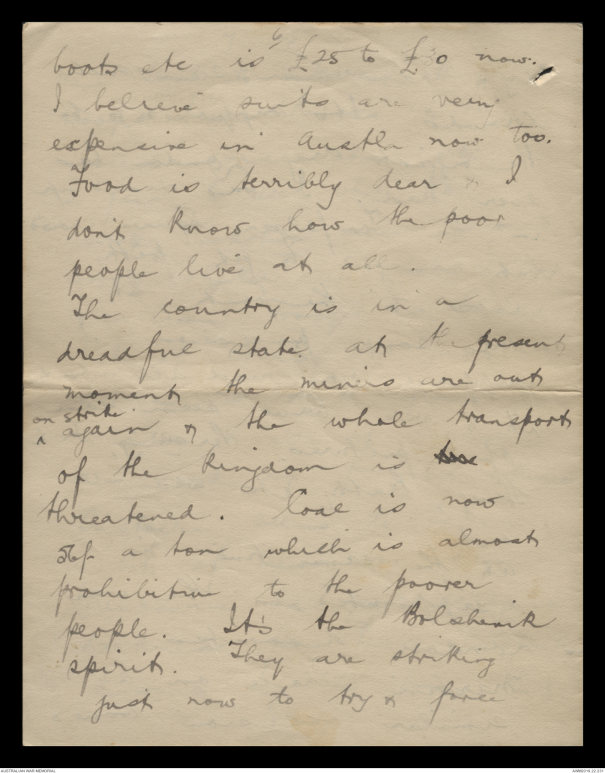 6
boots etc is £25 to £30 now.
I believe suits are very
expensive in Austla now too.
Food is terribly dear & I
don't know how the poor
people live at all.
The country is in a
dreadful state. at the present
moment the miners are out
on strike
^ again & the whole transport
of the kingdom is
threatened. Coal is now
56/- a ton which is almost
prohibitive to the poorer
people. It's the Bolshevik
spirit. They are striking
just now to try & force
AUSTRALIAN WAR MEMORIAL